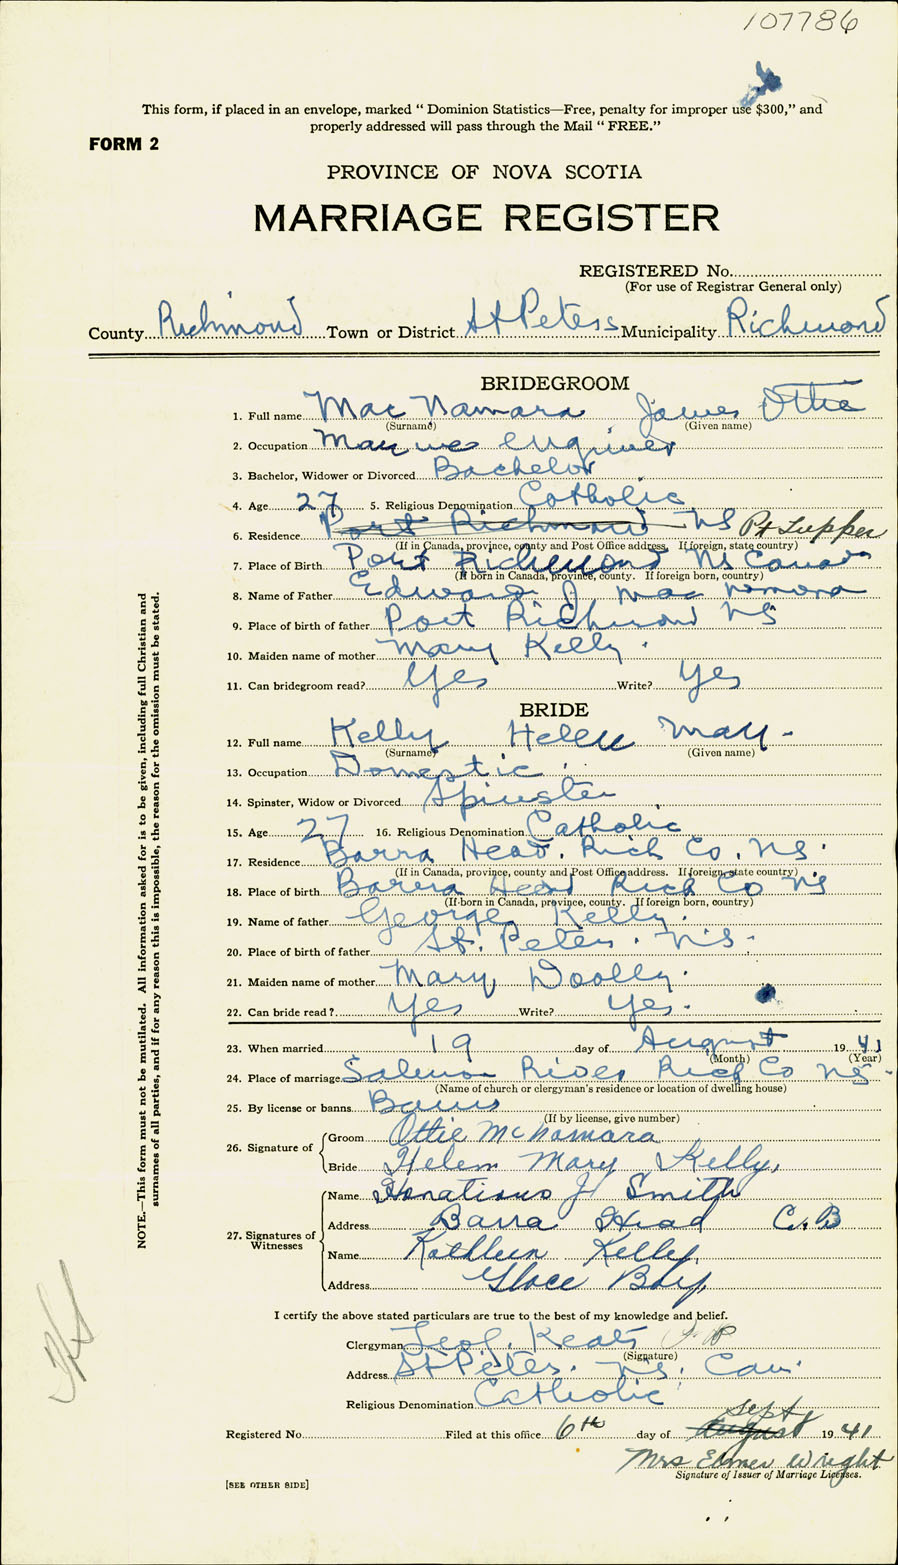 107786
This form, if placed in an envelope, marked “ Dominion Statistics—Free, penalty for improper use $300,” and
properly addressed will pass through the Mail “ FREE.”
FORM 2
PROVINCE OF NOVA SCOTIA
MARRIAGE REGISTER
REGISTERED No.
(For use of Registrar General only)
County Richmond Town or District St Peters Municipality Richmond
BRIDEGROOM
1. Full name Mac Namara James Ottie
(Surname) (Given name)
2. Occupation
3. Bachelor, Widower or Divorced Bachelor
4. Age 27 5. Religious Denomination Catholic
6. Residence Port Richmond NS Pt Tupper
(If in Canada, province, county and Post Office address. If foreign, state country)
7. Place of Birth Port Richmond NS Canada
(If born in Canada, province, county. If foreign born, country)
8. Name of Father Edward J. Mac Namara
9. Place of birth of father Port Richmond NS
10. Maiden name of mother Mary Kelly.
11. Can bridegroom read? Yes Write? Yes
BRIDE
12. Full name Kelly Helen May -
(Surname) (Given name)
13. Occupation Domestic.
14. Spinster, Widow or Divorced Spinster
15. Age 27 16. Religious Denomination Catholic
17. Residence Barra Head. Rich Co. NS.
(If in Canada, province, county and Post Office address. If foreign, state country)
18. Place of birth Barra Head Rich Co NS
(If born in Canada, province, county. If foreign born, country)
19. Name of father George Kelly.
20. Place of birth of father St. Peters. NS.
21. Maiden name of mother Mary Doolly.
22. Can bride read? Yes Write? Yes.
23. When married 19 day of August 1941
(Month) (Year)
24. Place of marriage Salmon River Rich Co NS-
(Name of church or clergyman's residence or location of dwelling house)
25. By license or banns Banns
(If by license, give number)
26. Signature of
Groom Ottie McNamara
Bride Helen Mary Kelly,
27. Signatures of Witnesses
Name J Smith
Address Barra Head C.B
Name Kathleen Kelly
Address Glace Bay
I certify the above stated particulars are true to the best of my knowledge and belief.
Clergyman Leo J. Keats P P
(Signature)
Address St Peters. NS. Can.
Religious Denomination Catholic
Sept
Registered No. Filed at this office 6th day of August 1941
Mrs Elmer Wright
Signature of Issuer of Marriage Licenses.
[SEE OTHER SIDE]
NOTE.—This form must not be mutilated. All information asked for is to be given, including full Christian and
surnames of all parties, and if for any reason this is impossible, the reason for the omission must be stated.